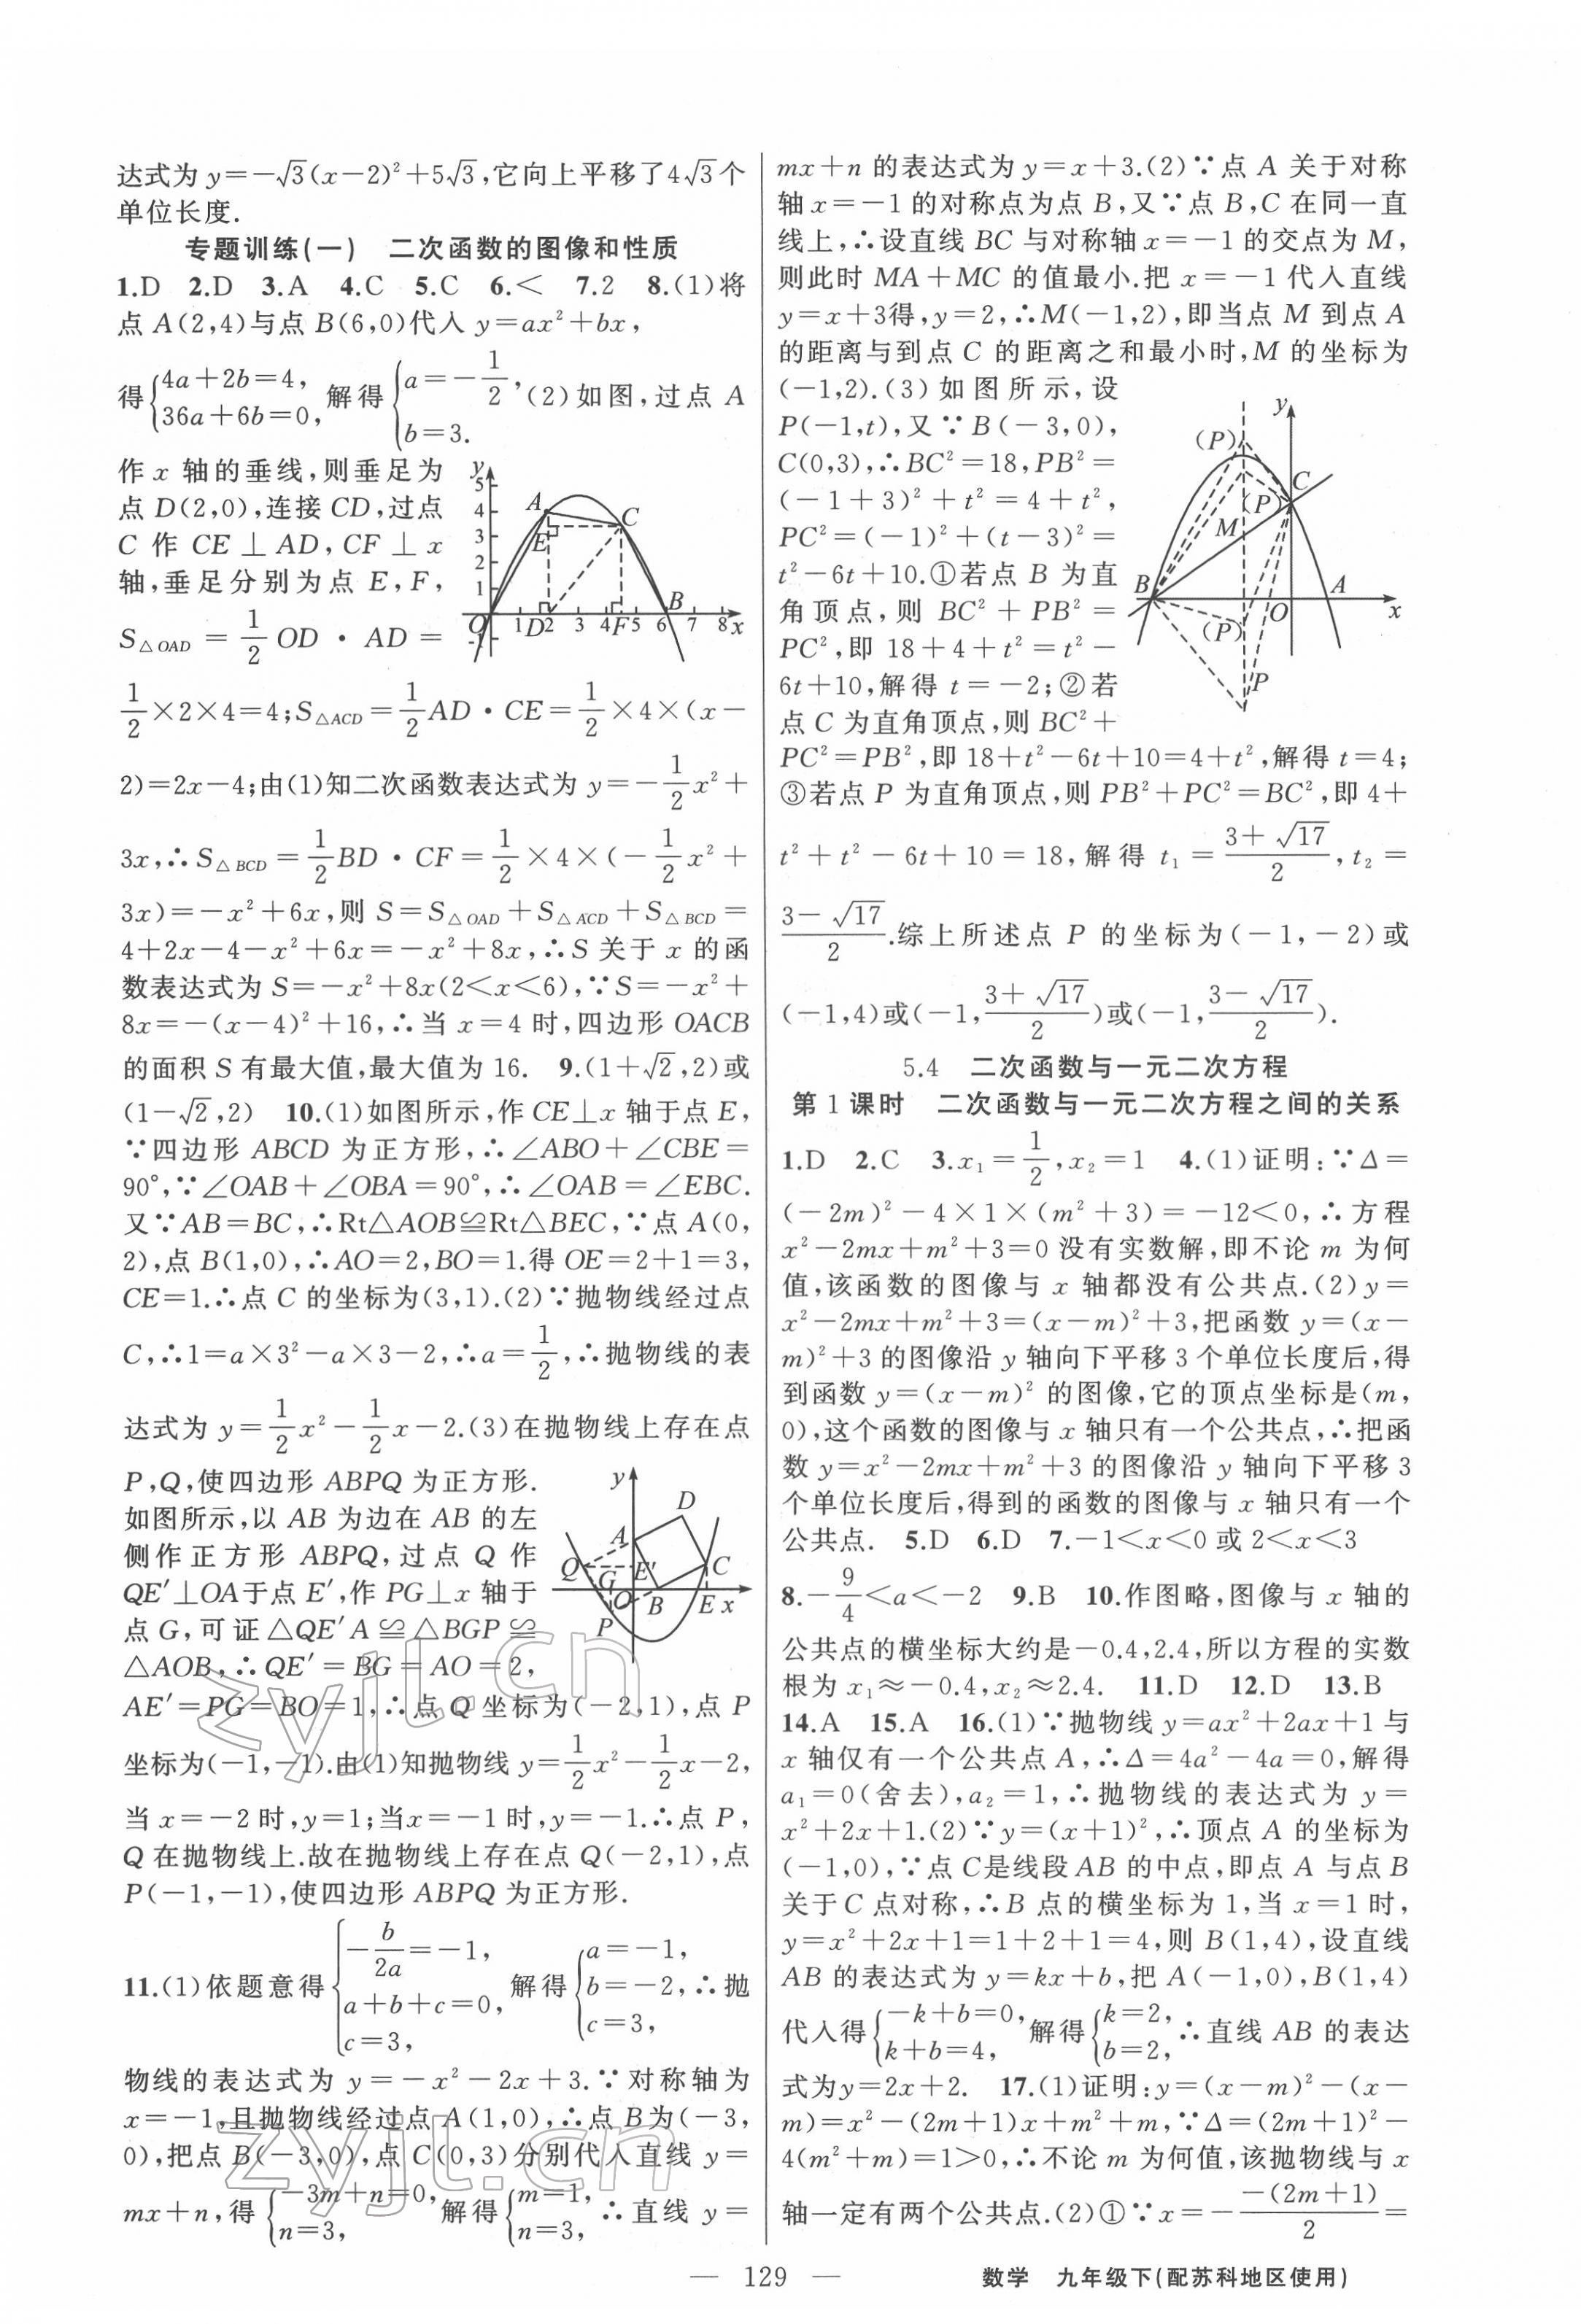 达式为 y=-√3(x-2)²+5√3,它向上平移了4√3个
单位长度.
专题训练(一) 二次函数的图像和性质
1.D 2.D 3.A 4.C 5.C 6.< 7.2 8.(1)将
点 A(2,4)与点 B(6,0)代入 y=ax²+bx,
得{4a+2b=4, 36a+6b=0, 解得{a=-1/2, b=3. (2)如图,过点 A
作 x 轴的垂线,则垂足为
点 D(2,0),连接 CD,过点
C 作 CE⊥AD,CF⊥x
轴,垂足分别为点 E,F,
S△OAD=1/2 OD·AD=
1/2×2×4=4;S△ACD=1/2 AD·CE=1/2×4×(x-
2)=2x-4;由(1)知二次函数表达式为 y=-1/2x²+
3x,∴S△BCD=1/2 BD·CF=1/2×4×(-1/2x²+
3x)=-x²+6x,则 S=S△OAD+S△ACD+S△BCD=
4+2x-4-x²+6x=-x²+8x,∴S 关于 x 的函
数表达式为 S=-x²+8x(2<x<6),∵S=-x²+
8x=-(x-4)²+16,∴当 x=4 时,四边形 OACB
的面积 S 有最大值,最大值为 16. 9.(1+√2,2)或
(1-√2,2) 10.(1)如图所示,作 CE⊥x 轴于点 E,
∵四边形 ABCD 为正方形,∴∠ABO+∠CBE=
90°,∵∠OAB+∠OBA=90°,∴∠OAB=∠EBC.
又∵AB=BC,∴Rt△AOB≌Rt△BEC,∵点 A(0,
2),点 B(1,0),∴AO=2,BO=1.得 OE=2+1=3,
CE=1.∴点 C 的坐标为(3,1).(2)∵抛物线经过点
C,∴1=a×3²-a×3-2,∴a=1/2,∴抛物线的表
达式为 y=1/2x²-1/2x-2.(3)在抛物线上存在点
P,Q,使四边形 ABPQ 为正方形.
如图所示,以 AB 为边在 AB 的左
侧作正方形 ABPQ,过点 Q 作
QE′⊥OA于点 E′,作 PG⊥x 轴于
点 G,可证△QE′A≌△BGP≌
△AOB,∴QE′=BG=AO=2,
AE′=PG=BO=1,∴点 Q 坐标为(-2,1),点 P
坐标为(-1,-1).由(1)知抛物线 y=1/2x²-1/2x-2,
当 x=-2 时,y=1;当x=-1 时,y=-1.∴点 P,
Q 在抛物线上.故在抛物线上存在点 Q(-2,1),点
P(-1,-1),使四边形 ABPQ 为正方形.
11.(1)依题意得{-b/2a=-1, a+b+c=0, c=3, 解得{a=-1, b=-2, c=3, ∴抛
物线的表达式为 y=-x²-2x+3.∵对称轴为
x=-1,且抛物线经过点 A(1,0),∴点 B为(-3,
0),把点 B(-3,0),点 C(0,3)分别代入直线 y=
mx+n,得{-3m+n=0, n=3, 解得{m=1, n=3, ∴直线 y=
y
5
4
3
2
1
-1
O
1 D 2 3 4 F 5 6 7 8 x
A
C
E
B
y
D
A
Q
E′
C
G
O
B
E x
P
mx+n 的表达式为 y=x+3.(2)∵点 A 关于对称
轴 x=-1 的对称点为点 B,又∵点 B,C 在同一直
线上,∴设直线 BC 与对称轴 x=-1 的交点为 M,
则此时 MA+MC 的值最小.把 x=-1 代入直线
y=x+3得,y=2,∴M(-1,2),即当点 M 到点 A
的距离与到点 C 的距离之和最小时,M 的坐标为
(-1,2).(3)如图所示,设
P(-1,t),又∵B(-3,0),
C(0,3),∴BC²=18,PB²=
(-1+3)²+t²=4+t²,
PC²=(-1)²+(t-3)²=
t²-6t+10.①若点 B 为直
角顶点,则 BC²+PB²=
PC²,即 18+4+t²=t²-
6t+10,解得 t=-2;②若
点 C 为直角顶点,则 BC²+
PC²=PB²,即 18+t²-6t+10=4+t²,解得 t=4;
③若点 P 为直角顶点,则 PB²+PC²=BC²,即 4+
t²+t²-6t+10=18,解得 t₁=(3+√17)/2,t₂=
(3-√17)/2.综上所述点 P 的坐标为(-1,-2)或
(-1,4)或(-1,(3+√17)/2)或(-1,(3-√17)/2).
y
(P)
C
(P)
M
B
A
O
x
(P)
P
5.4 二次函数与一元二次方程
第 1 课时 二次函数与一元二次方程之间的关系
1.D 2.C 3.x₁=1/2,x₂=1 4.(1)证明:∵Δ=
(-2m)²-4×1×(m²+3)=-12<0,∴方程
x²-2mx+m²+3=0 没有实数解,即不论 m 为何
值,该函数的图像与 x 轴都没有公共点.(2)y=
x²-2mx+m²+3=(x-m)²+3,把函数 y=(x-
m)²+3 的图像沿 y 轴向下平移 3 个单位长度后,得
到函数 y=(x-m)² 的图像,它的顶点坐标是(m,
0),这个函数的图像与 x 轴只有一个公共点,∴把函
数 y=x²-2mx+m²+3 的图像沿 y 轴向下平移 3
个单位长度后,得到的函数的图像与 x 轴只有一个
公共点. 5.D 6.D 7.-1<x<0 或 2<x<3
8.-9/4<a<-2 9.B 10.作图略,图像与 x 轴的
公共点的横坐标大约是-0.4,2.4,所以方程的实数
根为 x₁≈-0.4,x₂≈2.4. 11.D 12.D 13.B
14.A 15.A 16.(1)∵抛物线 y=ax²+2ax+1 与
x 轴仅有一个公共点 A,∴Δ=4a²-4a=0,解得
a₁=0(舍去),a₂=1,∴抛物线的表达式为 y=
x²+2x+1.(2)∵y=(x+1)²,∴顶点 A 的坐标为
(-1,0),∵点 C是线段AB 的中点,即点 A 与点 B
关于 C 点对称,∴B 点的横坐标为 1,当 x=1 时,
y=x²+2x+1=1+2+1=4,则 B(1,4),设直线
AB 的表达式为 y=kx+b,把 A(-1,0),B(1,4)
代入得{-k+b=0, k+b=4, 解得{k=2, b=2, ∴直线 AB 的表达
式为y=2x+2. 17.(1)证明:y=(x-m)²-(x-
m)=x²-(2m+1)x+m²+m,∵Δ=(2m+1)²-
4(m²+m)=1>0,∴不论 m 为何值,该抛物线与 x
轴一定有两个公共点.(2)①∵x=--(2m+1)/2=
— 129 — 数学 九年级下(配苏科地区使用)
zyjl.cn
zyjl.cn